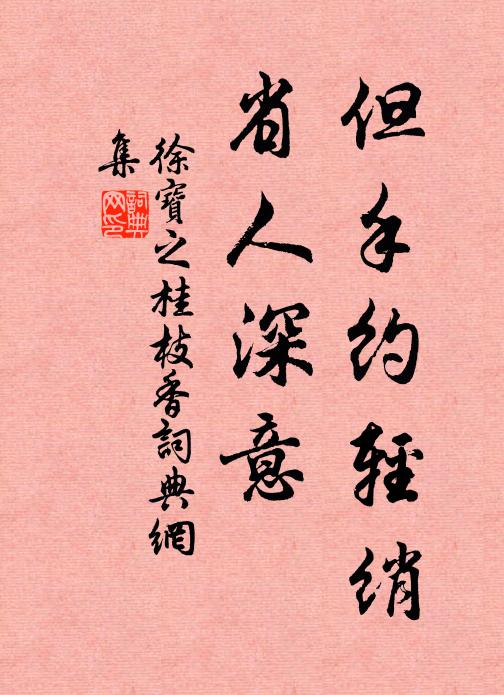 但手約輕綃
省人深意
徐寶之桂枝香詞典網
集
詞典
网印